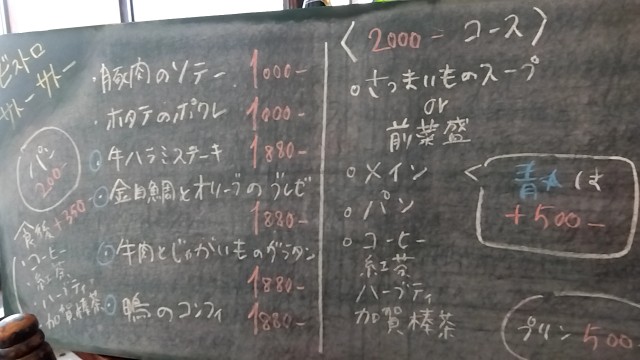 ビストロ
サトーサトー
・豚肉のソテー 1000-
・ホタテのポワレ 1000-
牛ハラミステーキ 1880-
金目鯛とオリーブのブレゼ
1880-
牛肉とじゃがいものグラタン
1880-
鴨のコンフィ 1880-
パン
200-
食後+350-
・コーヒー
・紅茶
・ハーブティ
・加賀棒茶
〈2000- コース〉
○さつまいものスープ
or
前菜盛
○メイン
○パン
○コーヒー
紅茶
ハーブティ
加賀棒茶
青は
+500-
プリン 500